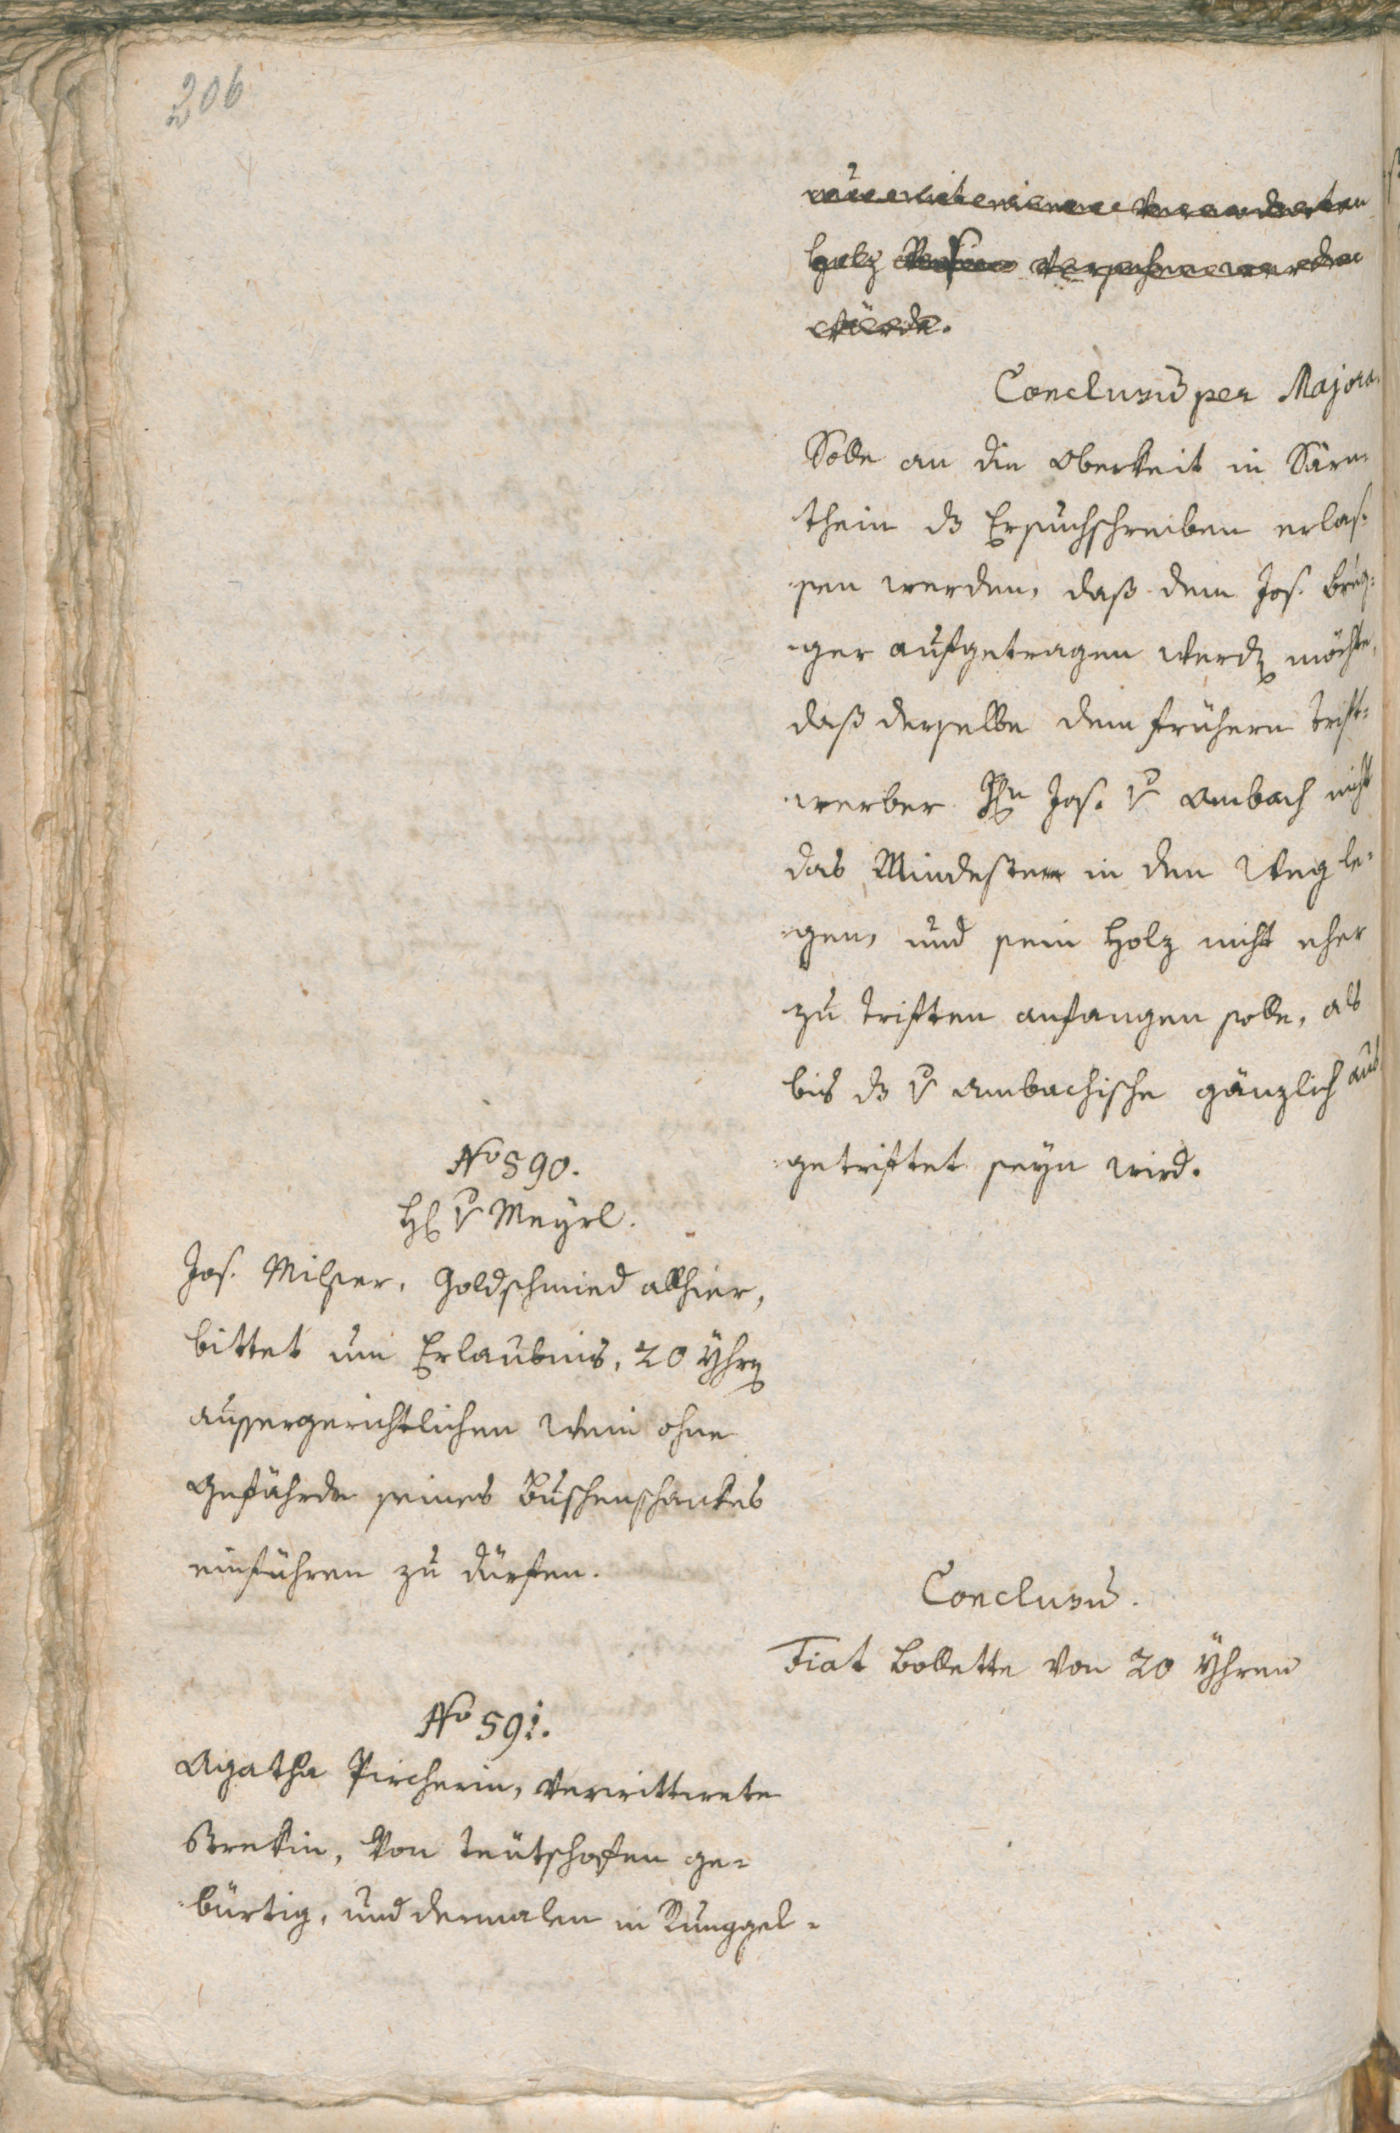 206
holz
würde.
Conclusū per Majora.
Solle an die Oberkeit in Särn-
thein ds Ersuchschreiben erlas-
sen werden, daß dem Jos. Brug-
ger aufgetragen werdꝫ möchte,
daß derselbe dem frühern Trift-
werber Hn Jos. v Ambach nicht
das Mindeste in den Weg le-
gen, und sein Holz nicht eher
zu triften anfangen solle, als
bis ds v Ambachische gänzlich aus
getriftet seyn wird.
No 590.
H v Meyrl.
Jos. Milser, Goldschmied allhier,
bittet um Erlaubnis, 20 Yhrꝫ
aussergerichtlichen Wein ohne
Gefährde seines Buschenschankes
einführen zu dürfen.
Conclusū.
Fiat Bollette von 20 Yhren
No 591.
Agatha Pircherin, verwittwete
von Teütschofen ge-
bürtig, und dermalen in Runggel-